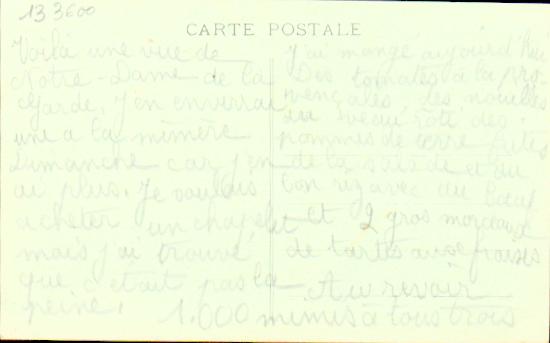 133600
CARTE POSTALE
Voilà une vue de
Notre-Dame de la
Garde, j'en enverrai
une a la mimère
Dimanche car j'en
ai plus. Je voulais
acheter un chapelet
mais j'ai trouvé
que c'était pas la
peine.
J'ai mangé aujourd'hui
Des tomates à la pro
vençales, des nouilles
du veau rôti des
pommes de terre frites
de la salade et du
bon riz avec du bœuf
et 2 gros morceaux
de tartes aux fraises
Au revoir
1.000 mimis à tous trois